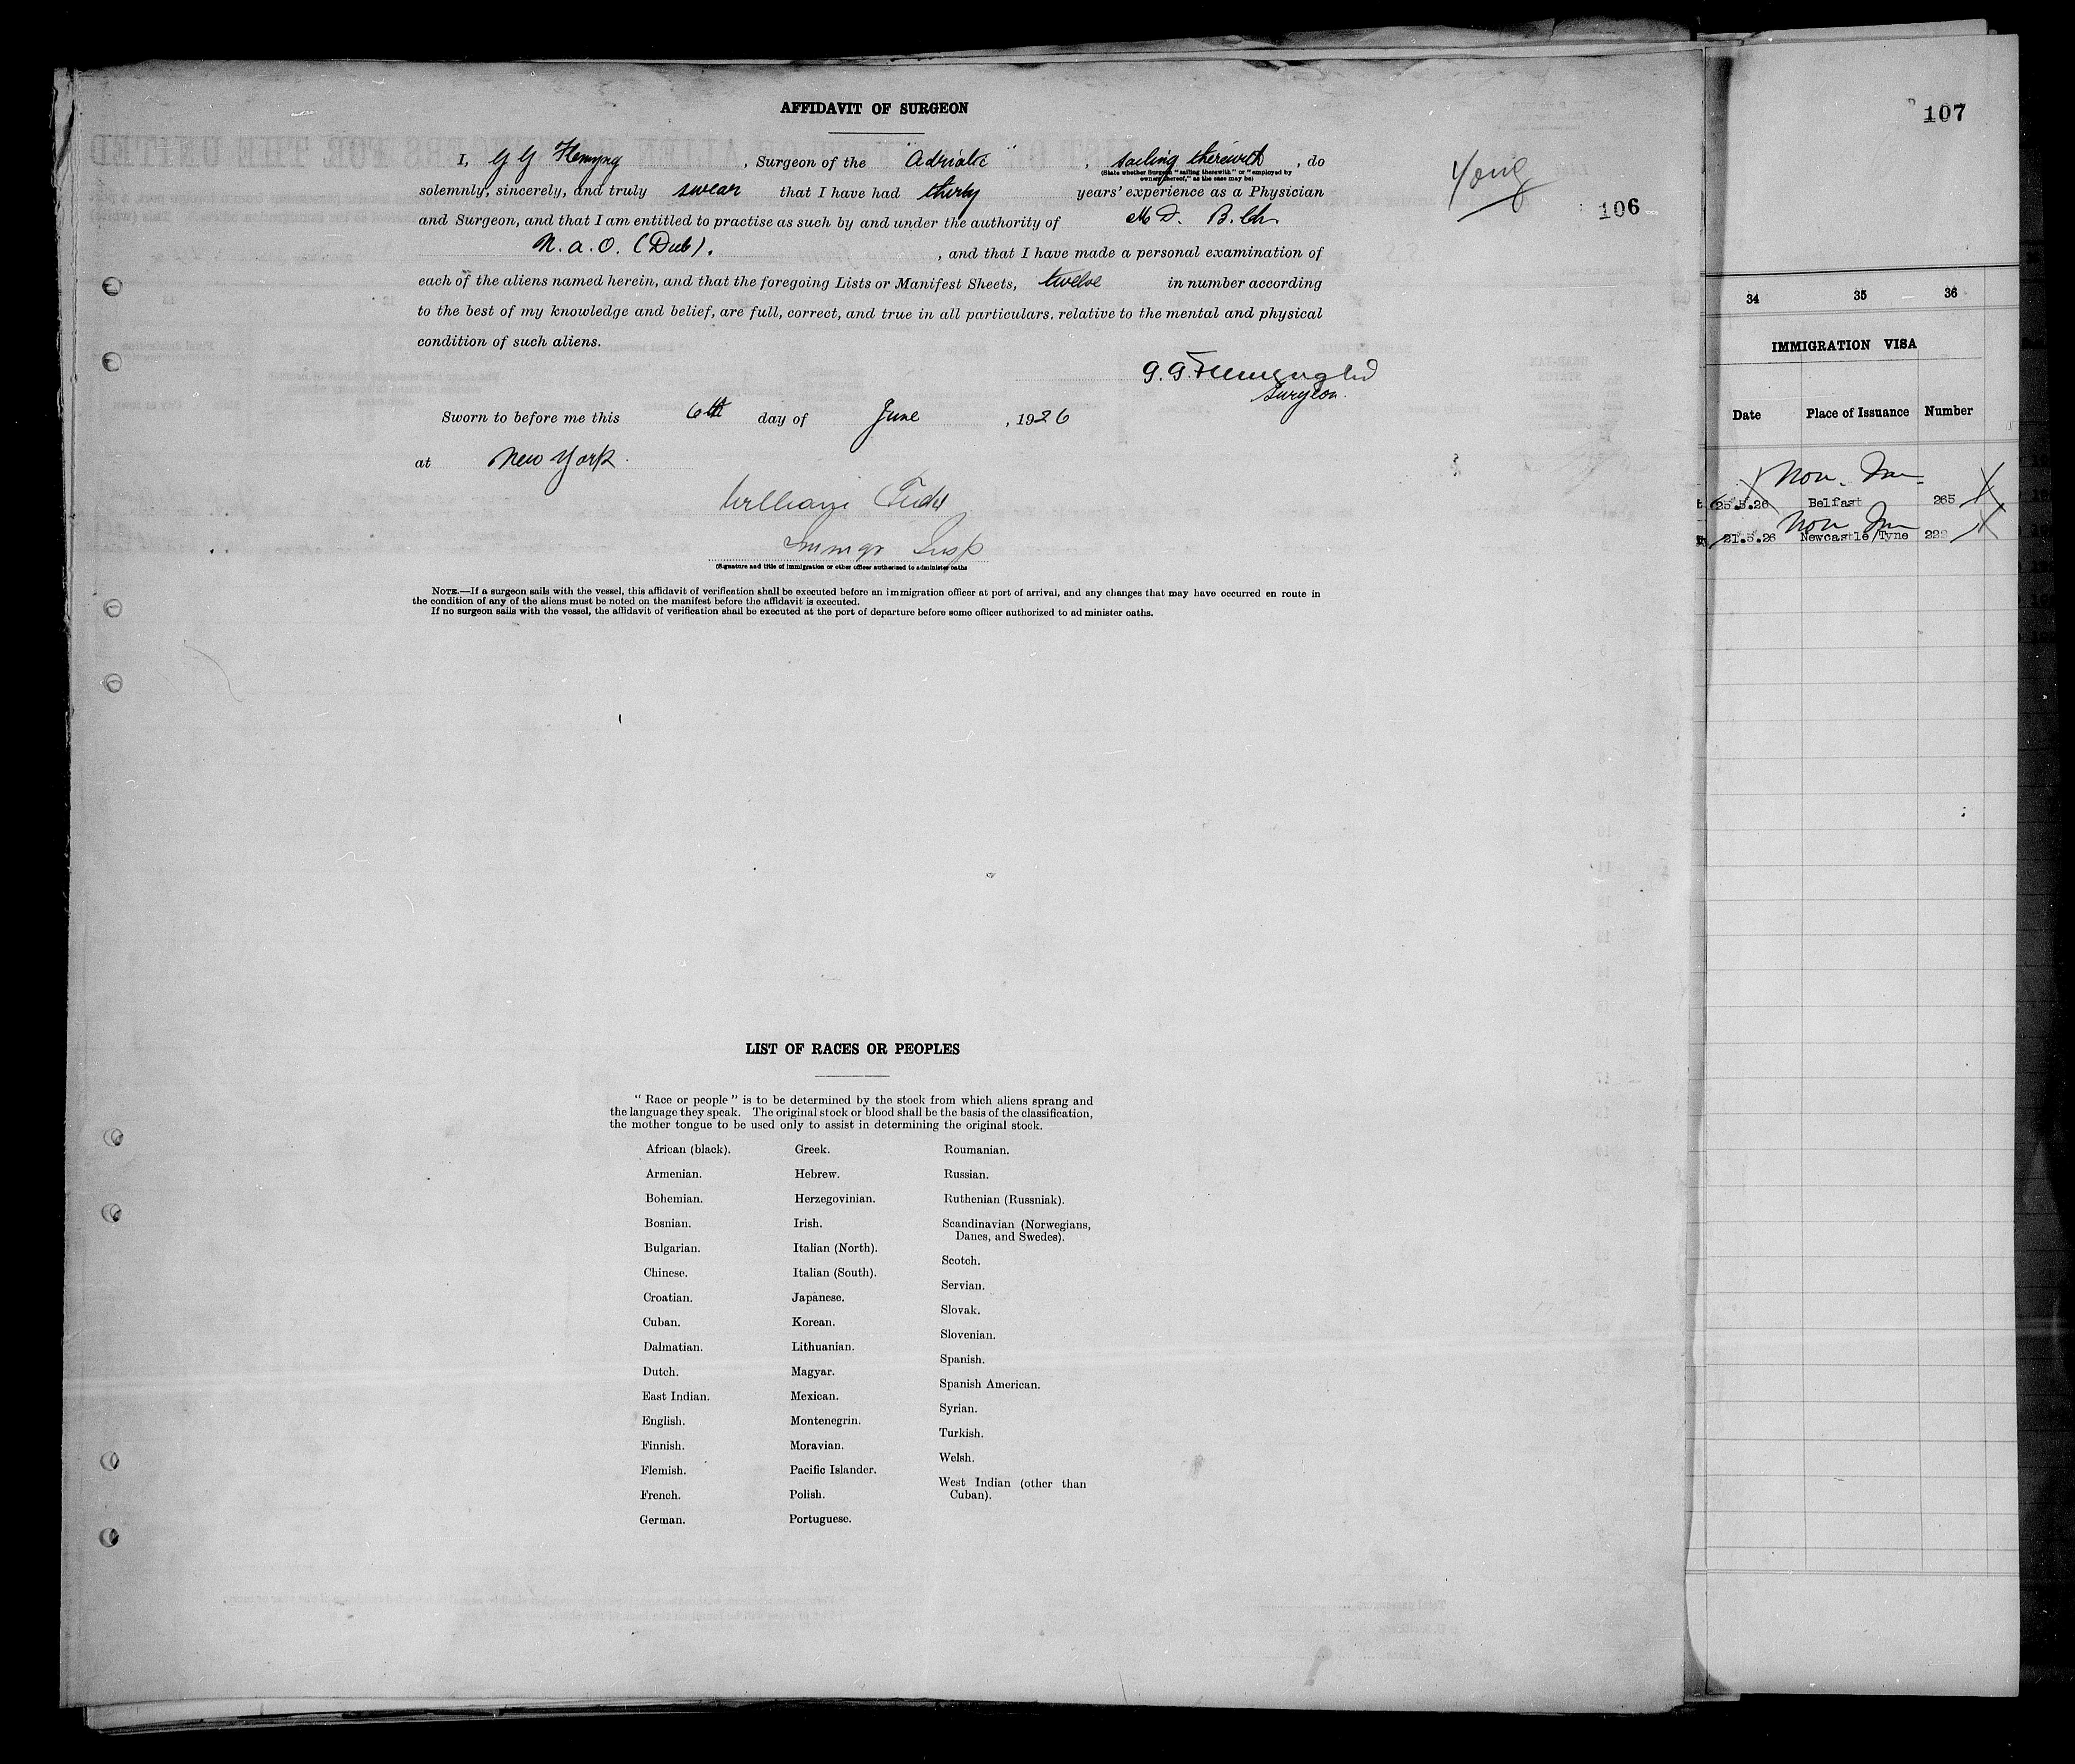 AFFIDAVIT OF SURGEON
I, G G Flemyng, Surgeon of the "Adriatic", sailing therewith, do
(State whether Surgeon "sailing therewith" or "employed by
owners thereof," as the case may be)
solemnly, sincerely, and truly swear that I have had thirty years' experience as a Physician
and Surgeon, and that I am entitled to practise as such by and under the authority of M D. B. Ch
M. A. O. (Dub). , and that I have made a personal examination of
each of the aliens named herein, and that the foregoing Lists or Manifest Sheets, twelve in number according
to the best of my knowledge and belief, are full, correct, and true in all particulars, relative to the mental and physical
condition of such aliens.
G. G. Flemyng MD
Surgeon.
Sworn to before me this 6th day of June, 1926
at New York.
William
Immgr Insp
(Signature and title of immigration or other officer authorized to administer oaths
NOTE.—If a surgeon sails with the vessel, this affidavit of verification shall be executed before an immigration officer at port of arrival, and any changes that may have occurred en route in
the condition of any of the aliens must be noted on the manifest before the affidavit is executed.
If no surgeon sails with the vessel, the affidavit of verification shall be executed at the port of departure before some officer authorized to ad minister oaths.
106
LIST OF RACES OR PEOPLES
"Race or people" is to be determined by the stock from which aliens sprang and
the language they speak. The original stock or blood shall be the basis of the classification,
the mother tongue to be used only to assist in determining the original stock.
African (black).
Armenian.
Bohemian.
Bosnian.
Bulgarian.
Chinese.
Croatian.
Cuban.
Dalmatian.
Dutch.
East Indian.
English.
Finnish.
Flemish.
French.
German.
Greek.
Hebrew.
Herzegovinian.
Irish.
Italian (North).
Italian (South).
Japanese.
Korean.
Lithuanian.
Magyar.
Mexican.
Montenegrin.
Moravian.
Pacific Islander.
Polish.
Portuguese.
Roumanian.
Russian.
Ruthenian (Russniak).
Scandinavian (Norwegians,
Danes, and Swedes).
Scotch.
Servian.
Slovak.
Slovenian.
Spanish.
Spanish American.
Syrian.
Turkish.
Welsh.
West Indian (other than
Cuban).
107
34 35 36
IMMIGRATION VISA
Date Place of Issuance Number
Non. Im
25.5.26 Belfast 265
Non Im
21.5.26 Newcastle/Tyne 222